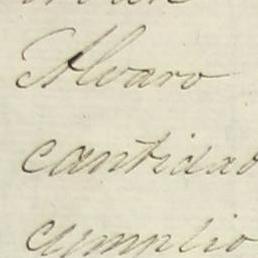 Alvaro
cantidad
cumplio